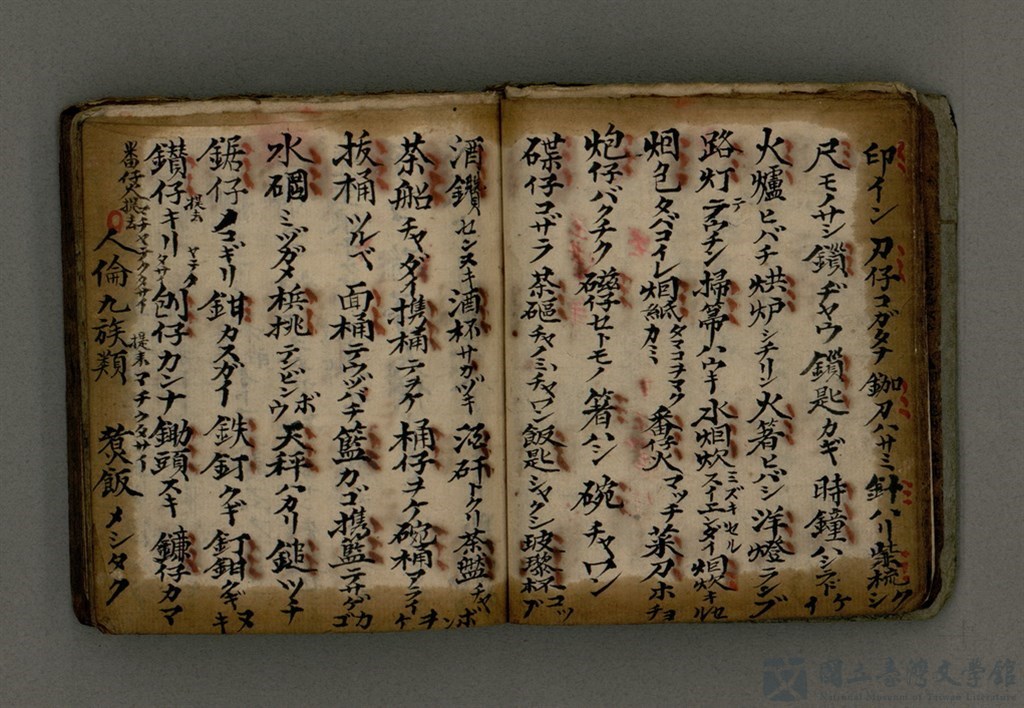 印イン 刀仔コガタナ 鉫刀ハサミ 針ハリ 柴梳クシ
尺モノサシ 鎖ヂャウ 鎖匙カギ 時鐘ハシラドケイ
火爐ヒバチ 烘炉シチリン 火箸ヒバシ 洋燈ランプ
路灯テウチン 掃箒ハウキ 水烟炊ミズキセル スイエンダイ 烟炊キルセ
烟包タバコイレ 烟紙タマコヲマクカミ 番仔火マッチ 菜刀ホチョ
炮仔バクチク 磁仔セトモノ 箸ハシ 碗チャワン
碟仔コザラ 茶甌チャノミチャワン 飯匙シャクシ 玻璨杯コップ
酒鑽センヌキ 酒杯サカヅキ 酒矸トクリ 茶盤チャボン
茶船チャダイ 携桶テヲケ 桶仔ヲケ 碗桶アライヲケ
拔桶ツルベ 面桶テウヅバチ 籃カゴ 携籃テサゲカゴ
水碙ミヅガメ 梹挑テンビンボウ 天秤ハカリ 鎚ツチ
鋸仔ノコギリ 鉗カスガイ 鉄釘クギ 釘鉗クギヌキ
鑚仔キリ 刨仔カンナ 鋤頭スキ 鐮仔カマ
人倫九族類 煑飯メシタク
提去
提来マチクタサイ
國立臺灣文學館
National Museum of Taiwan Literature